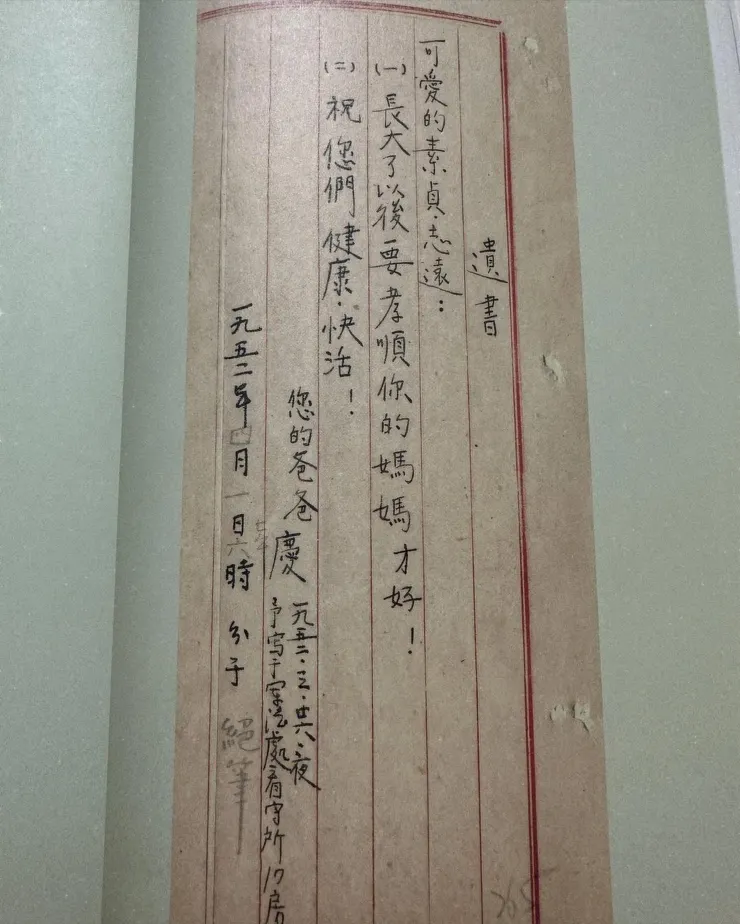 遺書
可愛的素貞·志遠：
(一) 長大了以後要孝順你的媽媽才好！
(二) 祝您們健康·快活！
您的爸爸 慶 一九五二·三·廿六·夜
予寫于軍法處看守所17房
一九五二年四月一日六時 分于 絕筆
265